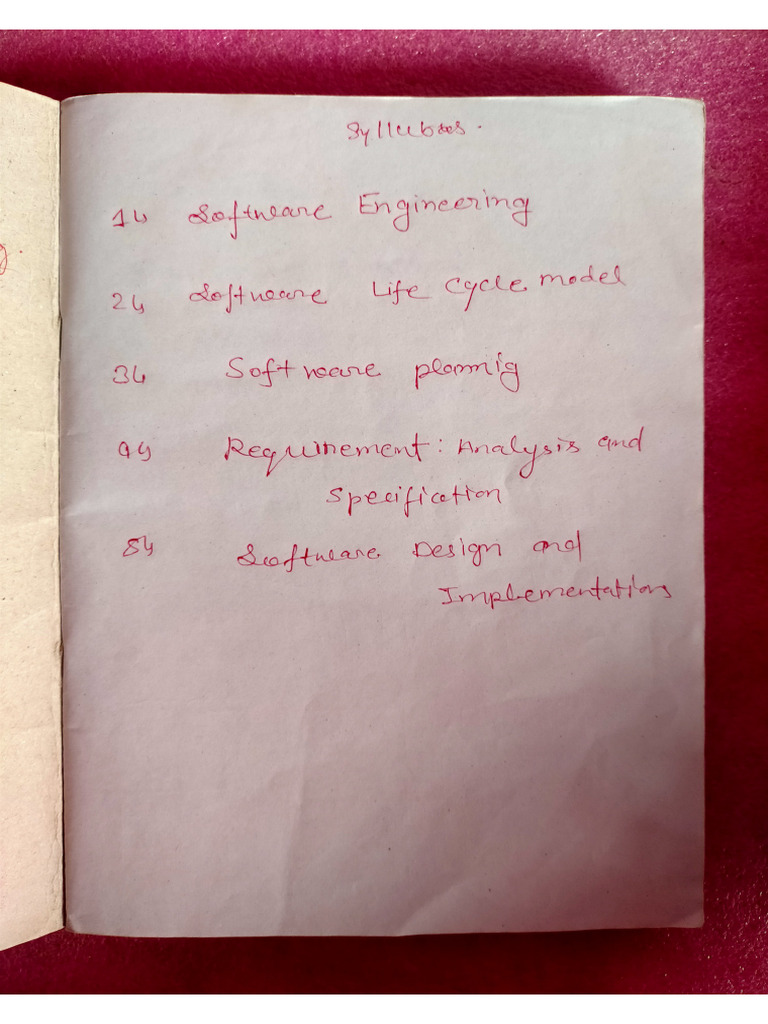 Syllubses.
1) Software Engineering
2) Software Life Cycle model
3) Software plannig
4) Requirement: Analysis and
Specification
5) Software Design and
Implementations
g